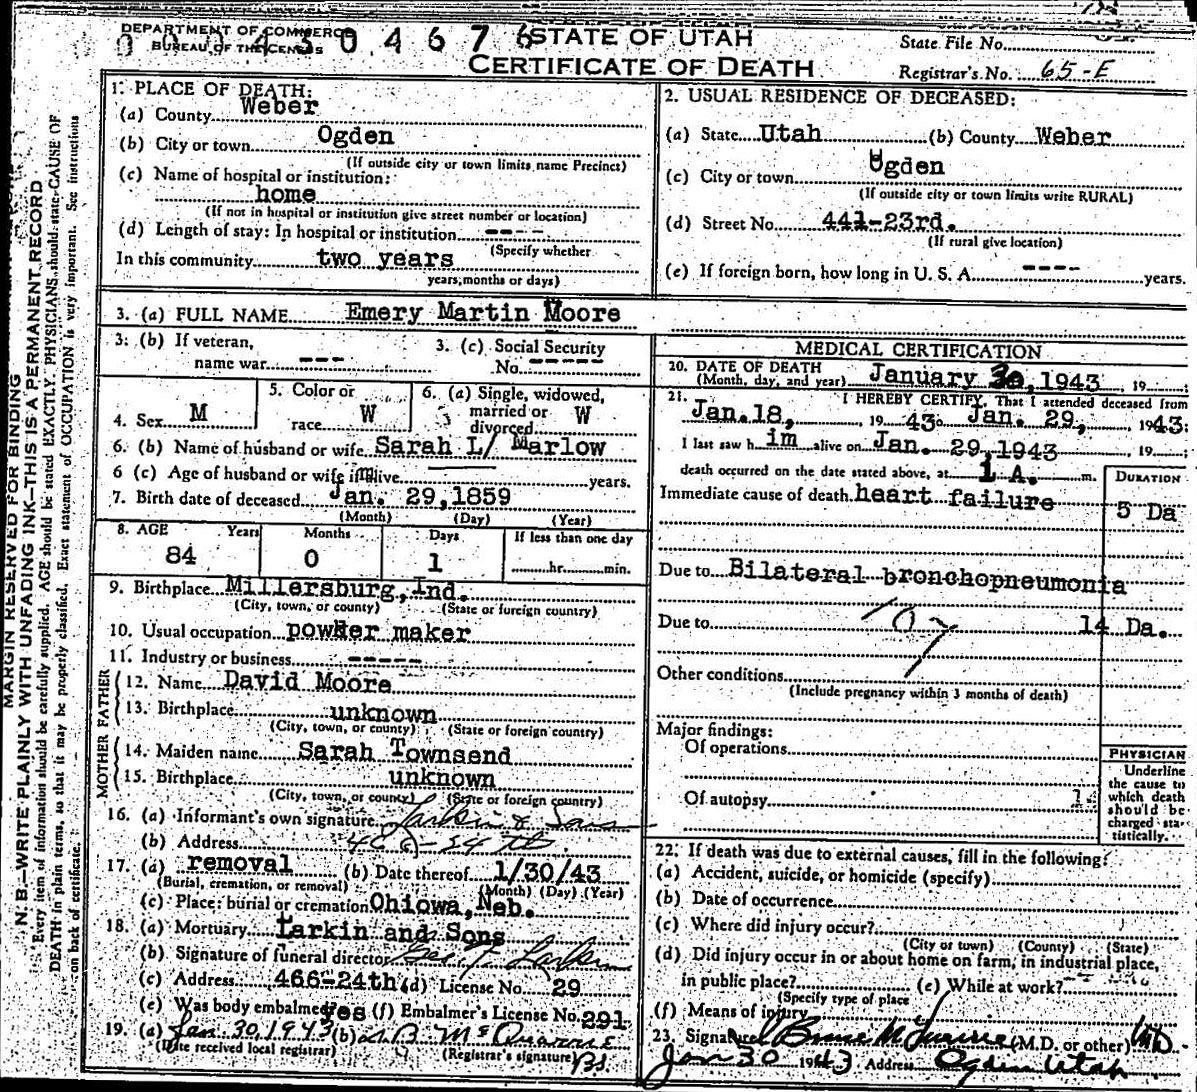 DEPARTMENT OF COMMERCE
BUREAU OF THE CENSUS
43 04676
STATE OF UTAH
CERTIFICATE OF DEATH
State File No.
Registrar's No. 65-E
MARGIN RESERVED FOR BINDING
N. B.—WRITE PLAINLY WITH UNFADING INK—THIS IS A PERMANENT RECORD
Every item of information should be carefully supplied. AGE should be stated EXACTLY. PHYSICIANS should state CAUSE OF
DEATH in plain terms, so that it may be properly classified. Exact statement of OCCUPATION is very important. See instructions
on back of certificate.
1. PLACE OF DEATH:
(a) County Weber
(b) City or town Ogden
(If outside city or town limits name Precinct)
(c) Name of hospital or institution:
home
(If not in hospital or institution give street number or location)
(d) Length of stay: In hospital or institution ----
(Specify whether
In this community two years
years, months or days)
2. USUAL RESIDENCE OF DECEASED:
(a) State Utah (b) County Weber
(c) City or town Ogden
(If outside city or town limits write RURAL)
(d) Street No. 441-23rd.
(If rural give location)
(e) If foreign born, how long in U. S. A. ---- years.
3. (a) FULL NAME Emery Martin Moore
3. (b) If veteran,
name war ---
3. (c) Social Security
No. -----
4. Sex M
5. Color or
race W
6. (a) Single, widowed,
married or
divorced W
6. (b) Name of husband or wife Sarah L/ Marlow
6 (c) Age of husband or wife if alive years.
7. Birth date of deceased Jan. 29,1859
(Month) (Day) (Year)
8. AGE Years Months Days If less than one day
84 0 1 hr. min.
9. Birthplace Millersburg, Ind.
(City, town, or county) (State or foreign country)
10. Usual occupation powder maker
11. Industry or business -----
FATHER
12. Name David Moore
13. Birthplace unknown
(City, town, or county) (State or foreign country)
MOTHER
14. Maiden name Sarah Townsend
15. Birthplace unknown
(City, town, or county) (State or foreign country)
16. (a) Informant's own signature Larkin & Sons
(b) Address 466-24th.
17. (a) removal (b) Date thereof 1/30/43
(Burial, cremation, or removal) (Month) (Day) (Year)
(c) Place: burial or cremation Ohiowa, Neb.
18. (a) Mortuary Larkin and Sons
(b) Signature of funeral director Geo. T. Larkin
(c) Address 466-24th (d) License No. 29
(e) Was body embalmed Yes (f) Embalmer's License No. 291
19. (a) Jan. 30, 1943 (b)
(Date received local registrar) (Registrar's signature)
MEDICAL CERTIFICATION
20. DATE OF DEATH
(Month, day, and year) January 30, 1943, 19
21. I HEREBY CERTIFY, That I attended deceased from
Jan.18, , 1943 o Jan. 29, , 1943;
I last saw h im alive on Jan. 29,1943 , 19 ;
death occurred on the date stated above, at 1 A. m.
DURATION
Immediate cause of death heart failure 5 Da
Due to Bilateral bronchopneumonia
107
Due to 14 Da.
Other conditions
(Include pregnancy within 3 months of death)
Major findings:
Of operations
Of autopsy
PHYSICIAN
Underline
the cause to
which death
should be
charged sta-
tistically.
22. If death was due to external causes, fill in the following:
(a) Accident, suicide, or homicide (specify)
(b) Date of occurrence
(c) Where did injury occur?
(City or town) (County) (State)
(d) Did injury occur in or about home on farm, in industrial place,
in public place? (e) While at work?
(Specify type of place
(f) Means of injury
23. Signature (M.D. or other) MD
Jan 30 1943 Address Ogden Utah